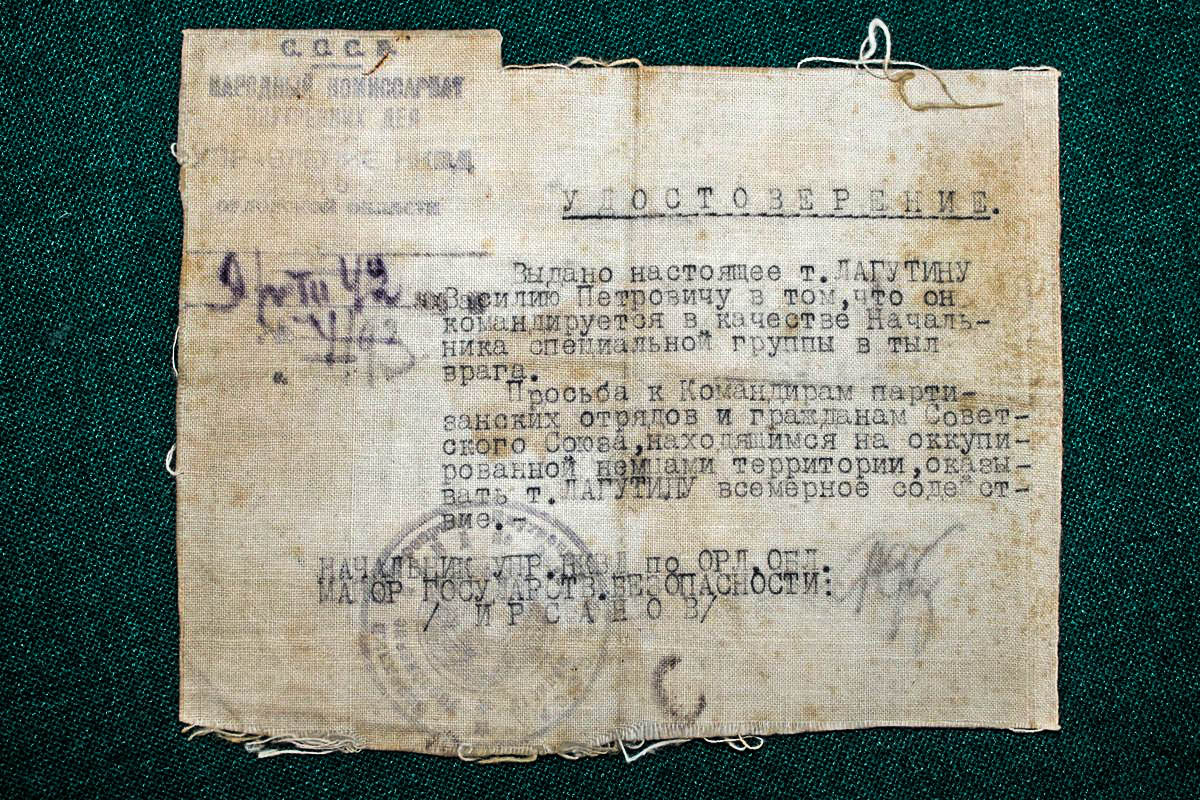 С.С.С.Р.
НАРОДНЫЙ КОМИССАРИАТ
ВНУТРЕННИХ ДЕЛ
УПРАВЛЕНИЕ НКВД
ПО
ОРЛОВСКОЙ ОБЛАСТИ
УДОСТОВЕРЕНИЕ.
Выдано настоящее т.ЛАГУТИНУ
Василию Петровичу в том,что он
командируется в качестве Началь-
ника специальной группы в тыл
врага.
Просьба к Командирам парти-
занских отрядов и гражданам Совет-
ского Союза,находящимся на оккупи-
рованной немцами территории,оказы-
вать т.ЛАГУТИЛУ всемерное содейст-
вие.-
НАЧАЛЬНИК УПР.НКВД по ОРЛ.ОБЛ.
МАЙОР ГОСУДАРСТВ.БЕЗОПАСНОСТИ:
/ИРСАНОВ/